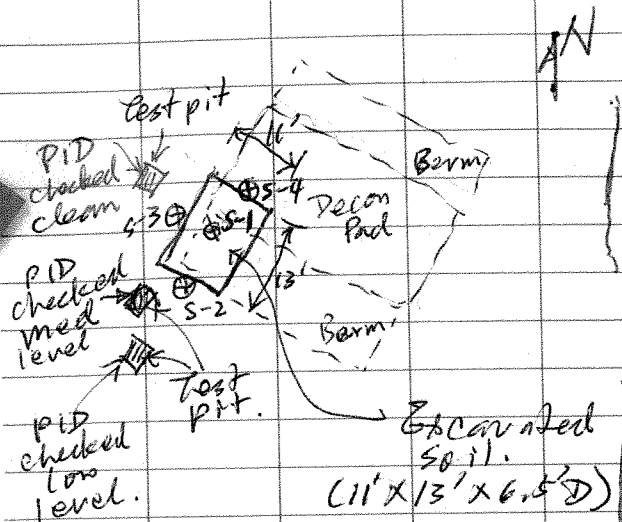 N
Test pit
PID
checked
clean
11'
Berm
S-4
S-3
S-1
Decon
Pad
PID
checked
med
level
13'
S-2
Berm
Test
pit.
PID
checked
low
level.
Excavated
soil.
(11' X 13' X 6.5' D)